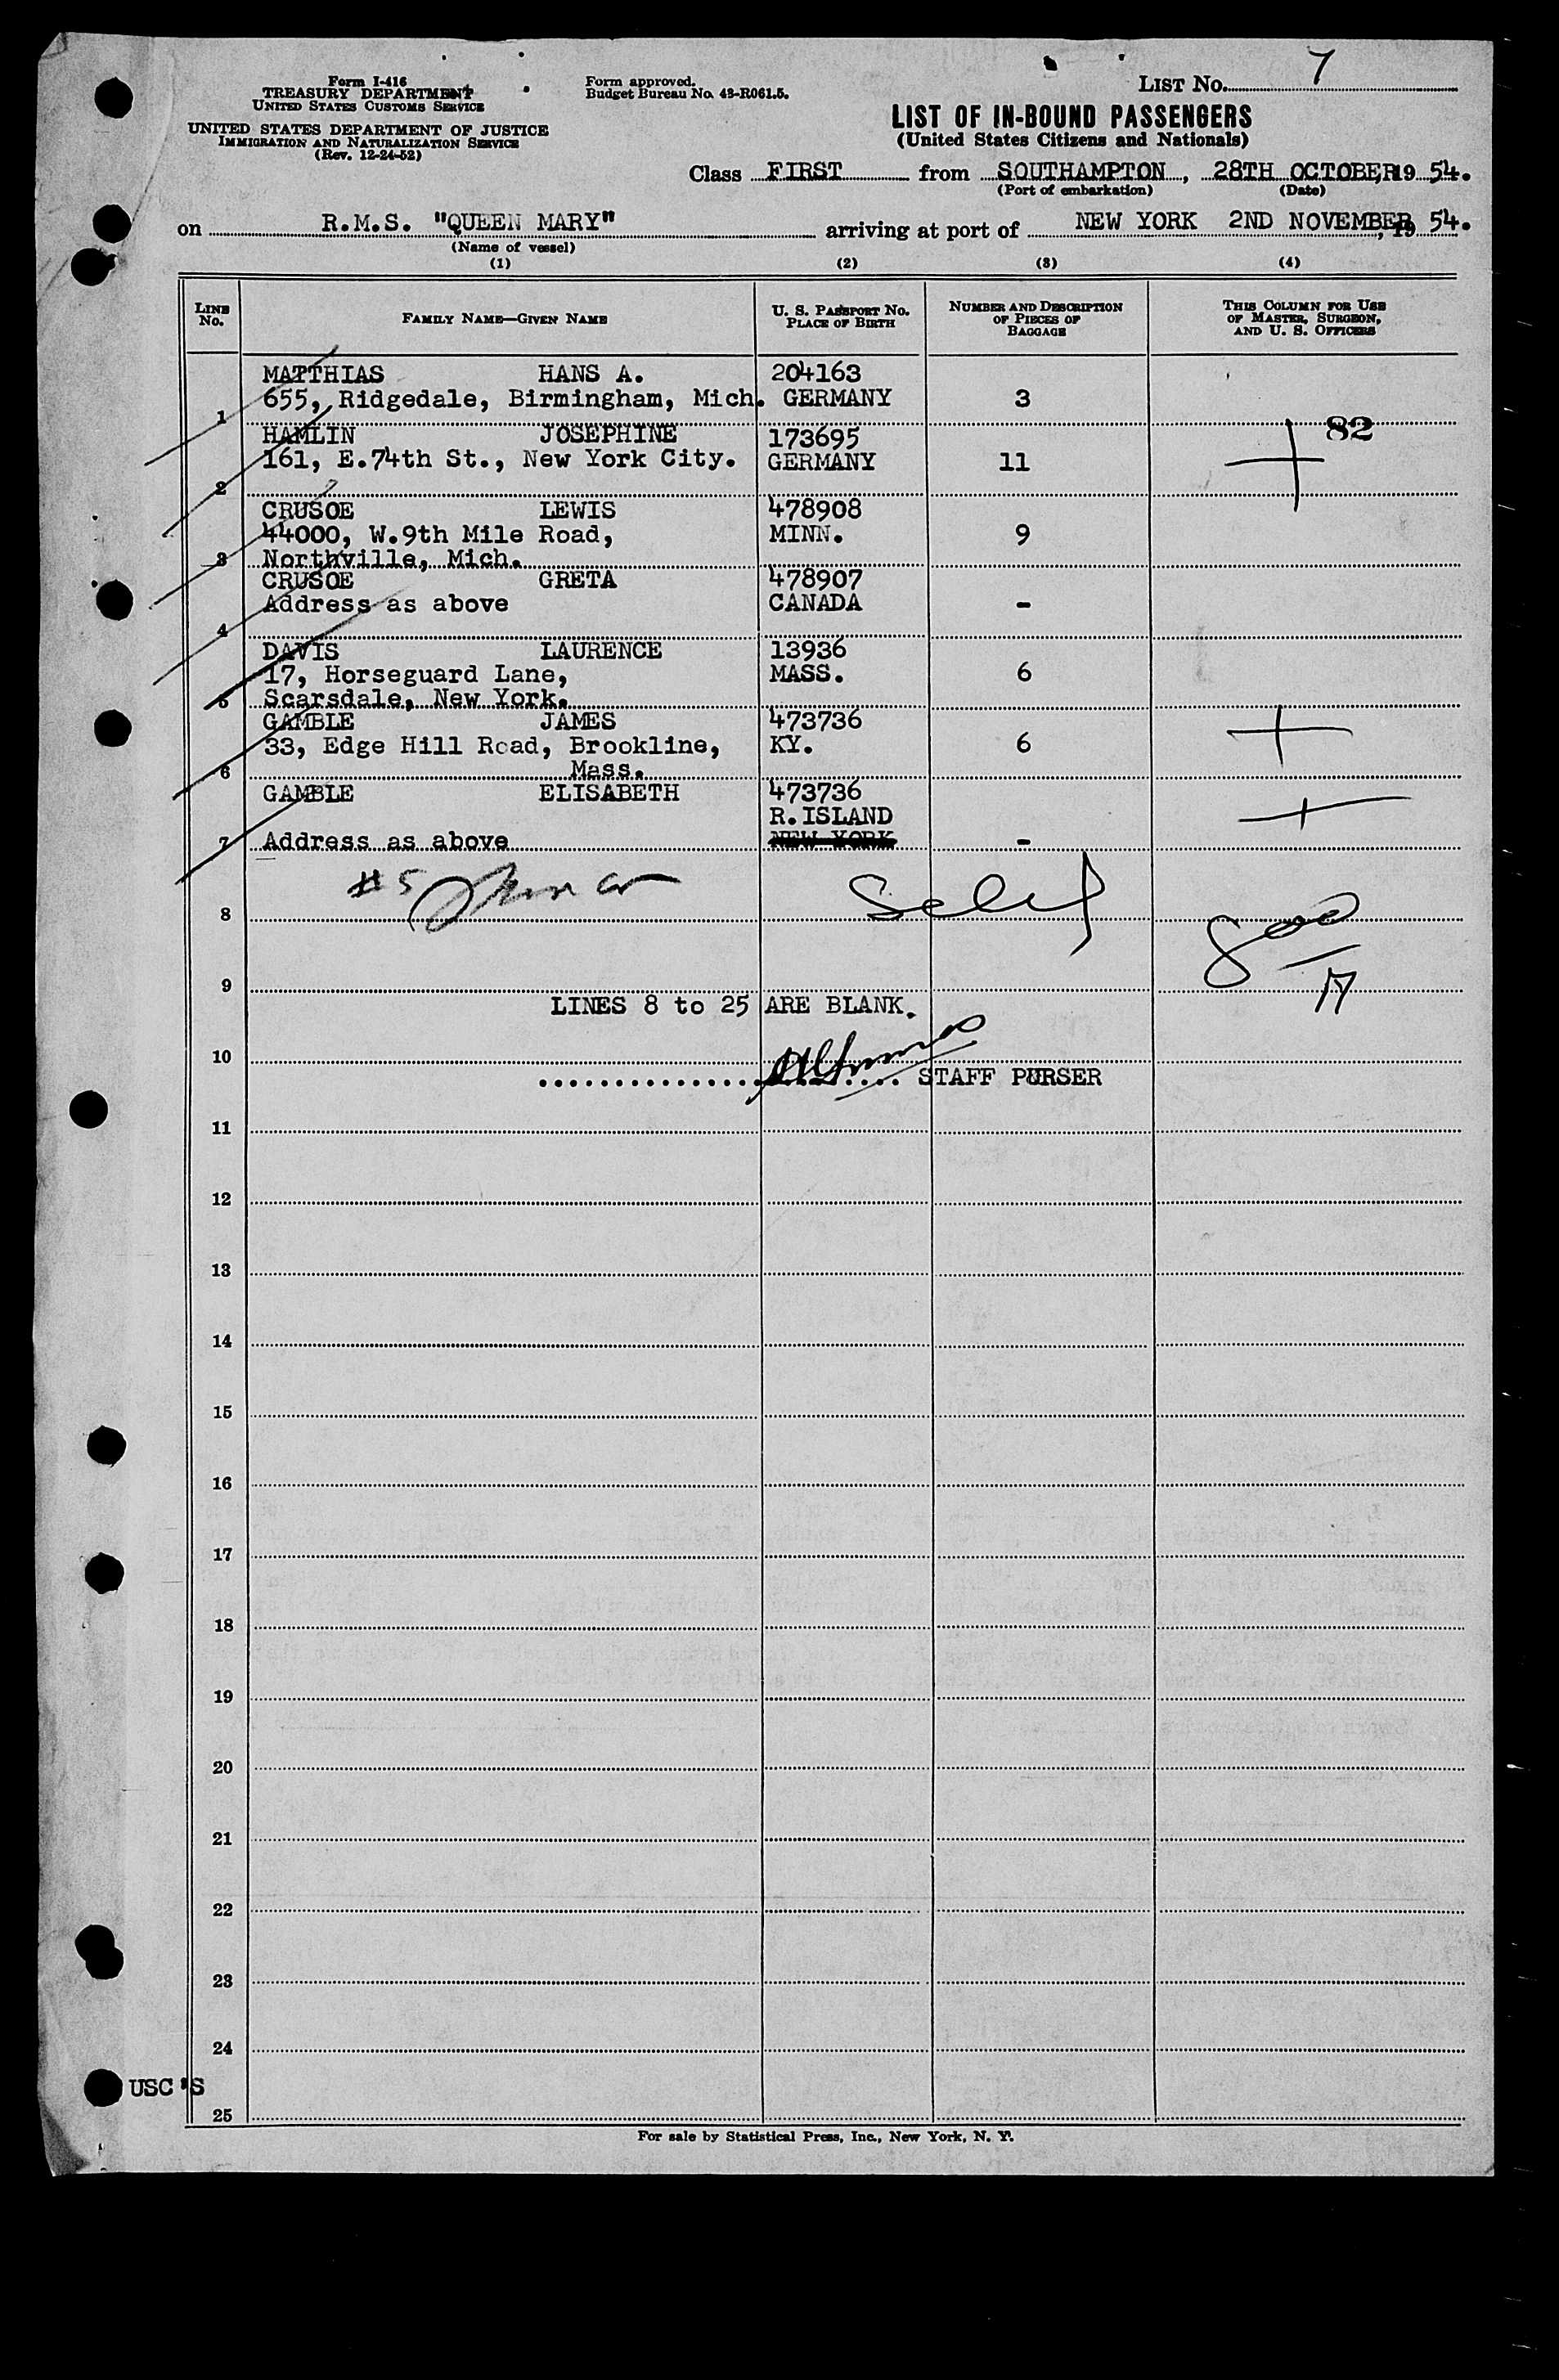 Form I-416
TREASURY DEPARTMENT
UNITED STATES CUSTOMS SERVICE
UNITED STATES DEPARTMENT OF JUSTICE
IMMIGRATION AND NATURALIZATION SERVICE
(Rev. 12-24-52)
Form approved.
Budget Bureau No. 43-R061.5.
LIST No. 7
LIST OF IN-BOUND PASSENGERS
(United States Citizens and Nationals)
Class FIRST from SOUTHAMPTON, 28TH OCTOBER, 19 54.
(Port of embarkation) (Date)
on R.M.S. "QUEEN MARY" arriving at port of NEW YORK 2ND NOVEMBER, 19 54.
(Name of vessel)
(1) (2) (3) (4)
LINE No. FAMILY NAME—GIVEN NAME U. S. PASSPORT No. PLACE OF BIRTH NUMBER AND DESCRIPTION OF PIECES OF BAGGAGE THIS COLUMN FOR USE OF MASTER, SURGEON, AND U. S. OFFICERS
MATTHIAS HANS A. 204163
1 655, Ridgedale, Birmingham, Mich. GERMANY 3
82
HAMLIN JOSEPHINE 173695
161, E.74th St., New York City. GERMANY 11
2
CRUSOE LEWIS 478908
44000, W.9th Mile Road, MINN. 9
3 Northville, Mich.
CRUSOE GRETA 478907
Address as above CANADA -
4
DAVIS LAURENCE 13936
17, Horseguard Lane, MASS. 6
5 Scarsdale, New York.
GAMBLE JAMES 473736
33, Edge Hill Road, Brookline, KY. 6
6 Mass.
GAMBLE ELISABETH 473736
R.ISLAND
7 Address as above NEW YORK -
#5
8
9
LINES 8 to 25 ARE BLANK.
10
STAFF PURSER
11
12
13
14
15
16
17
18
19
20
21
22
23
24
USC'S
25
For sale by Statistical Press, Inc., New York, N. Y.